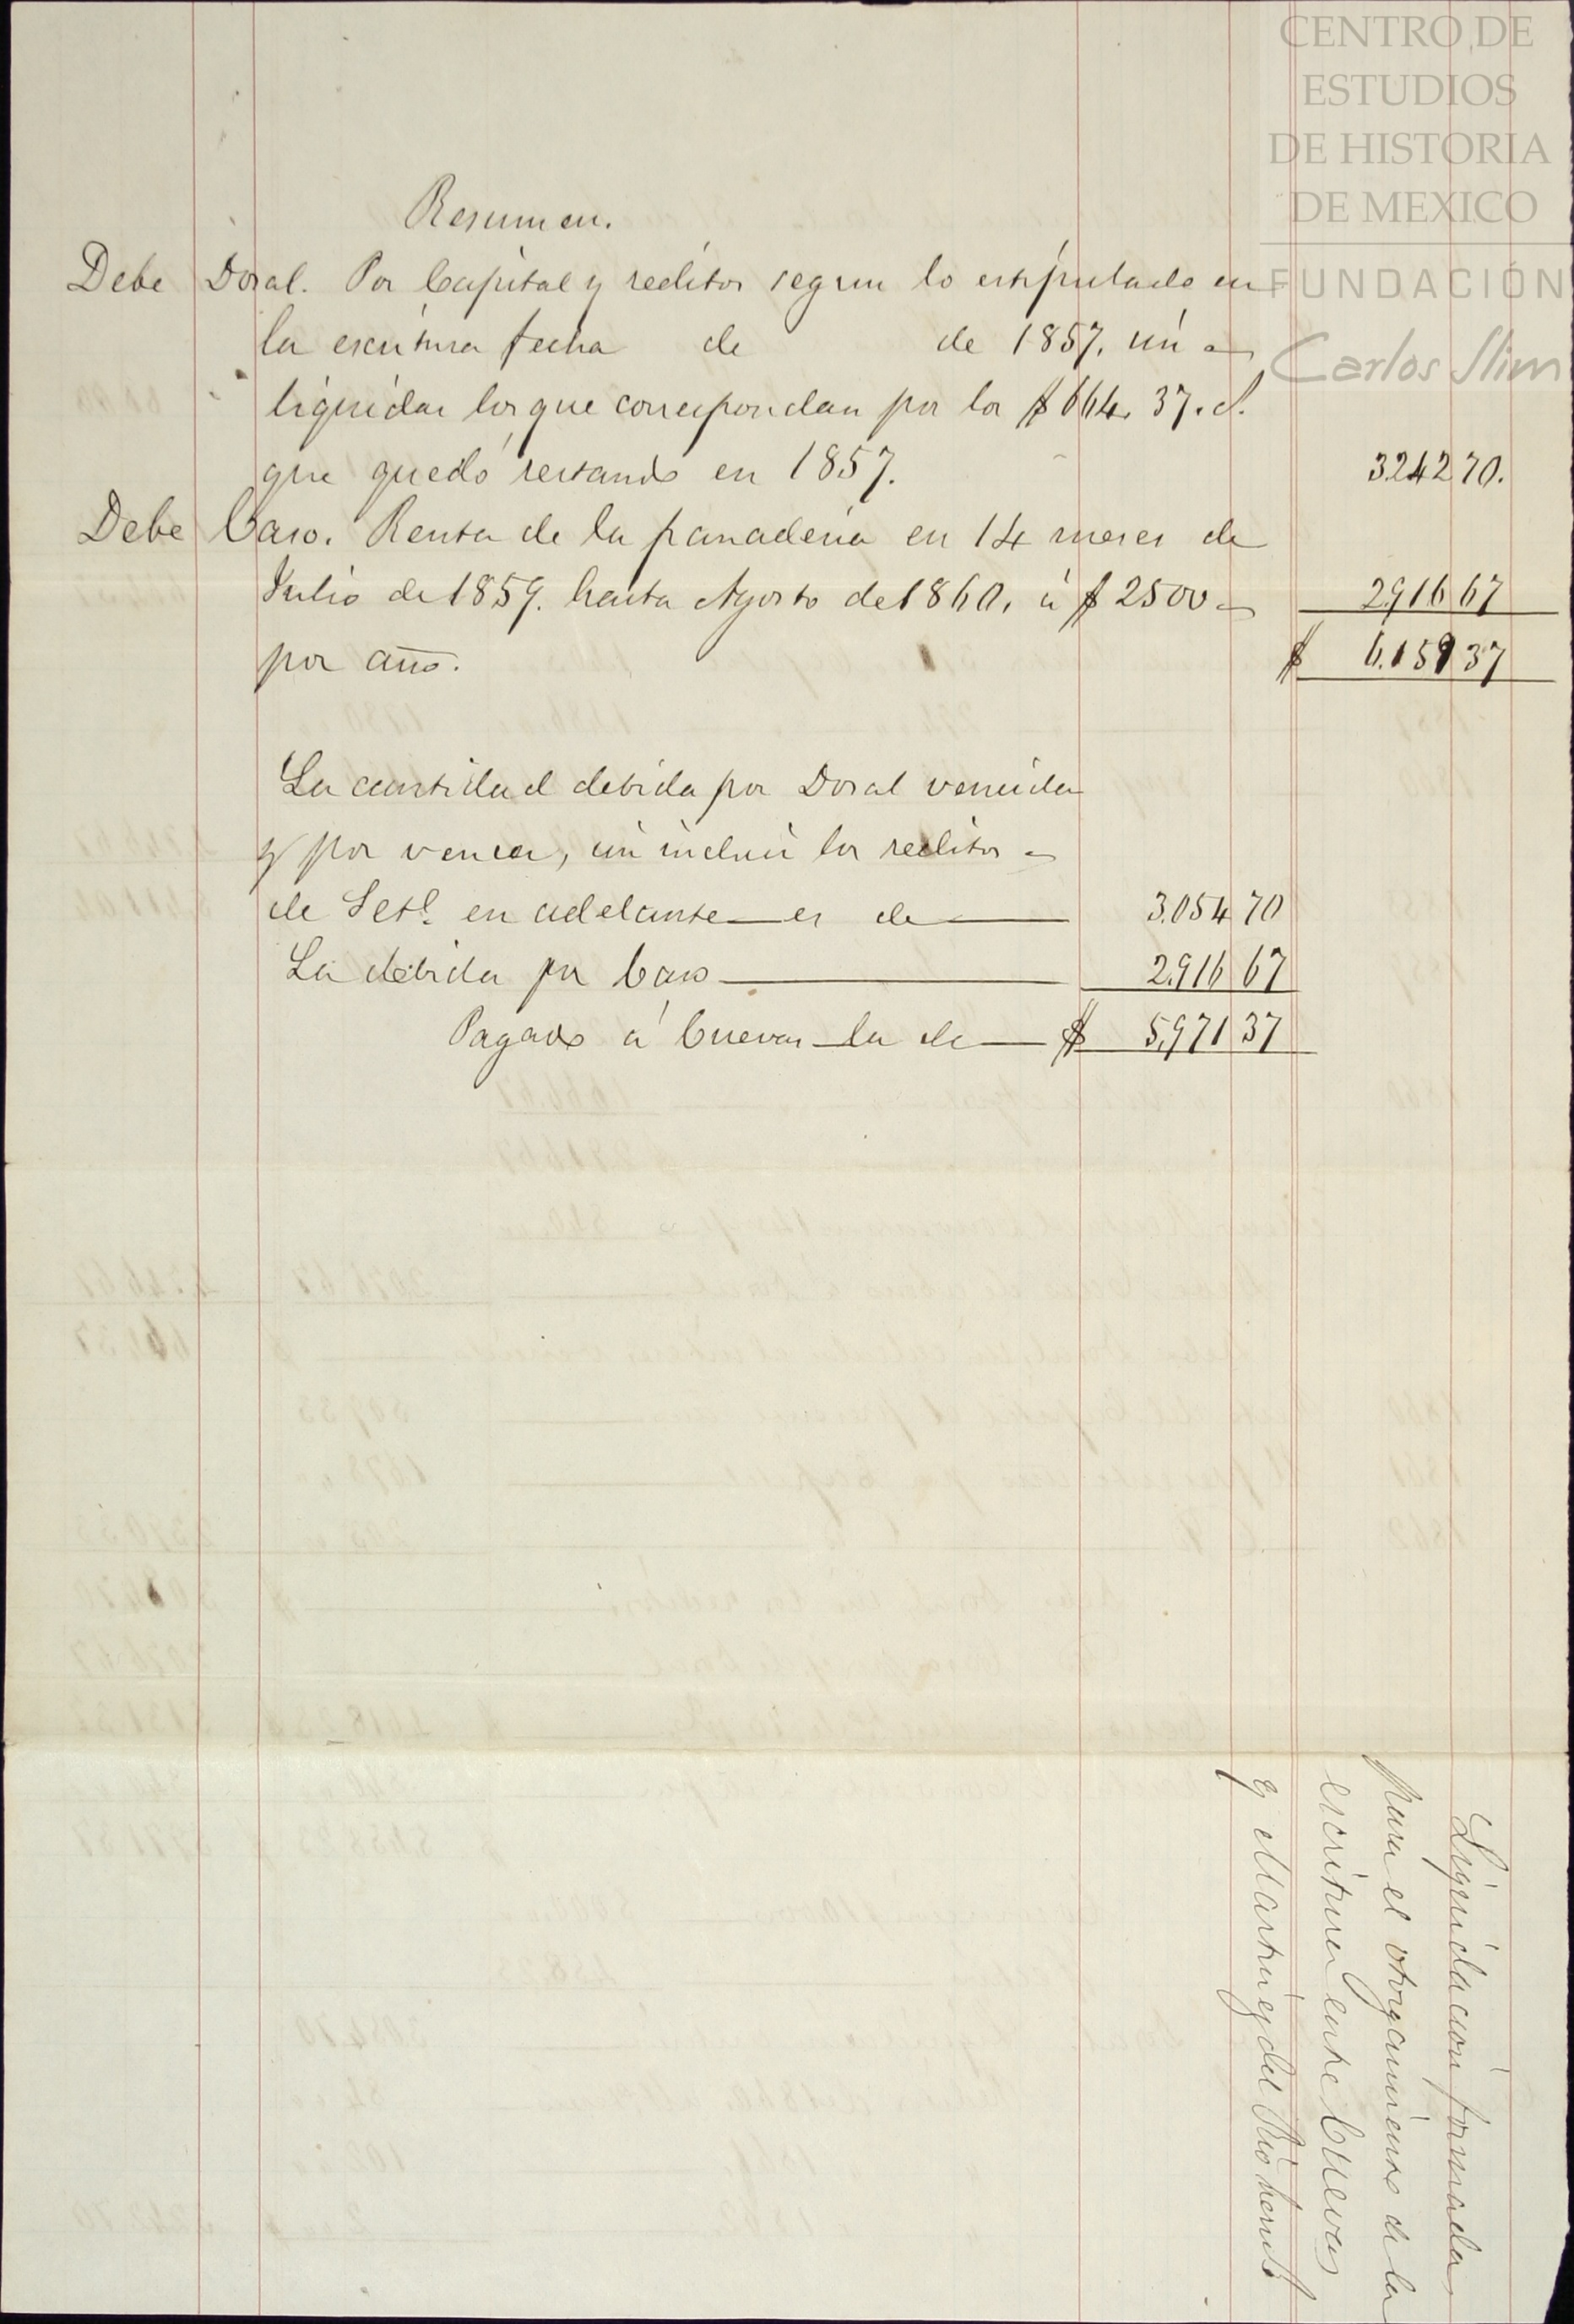 CENTRO DE
ESTUDIOS
DE HISTORIA
DE MEXICO
FUNDACIÓN
Carlos Slim
Resumen.
Debe Doral. Por Capital y reditos segun lo estipulado en
la escritura fecha de de 1857. sin
liquidar los que correspondan por los $664. 37. c.
que quedó restando en 1857. 3.242 70.
Debe Caso. Renta de la panaderia en 14 meses de
Julio de 1859. hasta Agosto de 1860, á $2500 2.916 67
por año. $ 6.159 37
La cantidad debida por Doral vencida
y por vencer, sin incluir los reditos
de Sete. en adelante es de 3.054 70
La debida por Caso 2.916 67
Pagado á Cuevas la de $ 5.971 37
Liquidacion formada
para el otorgamiento de la
escritura entre Cuevas
y Martinez del Rio hermos.